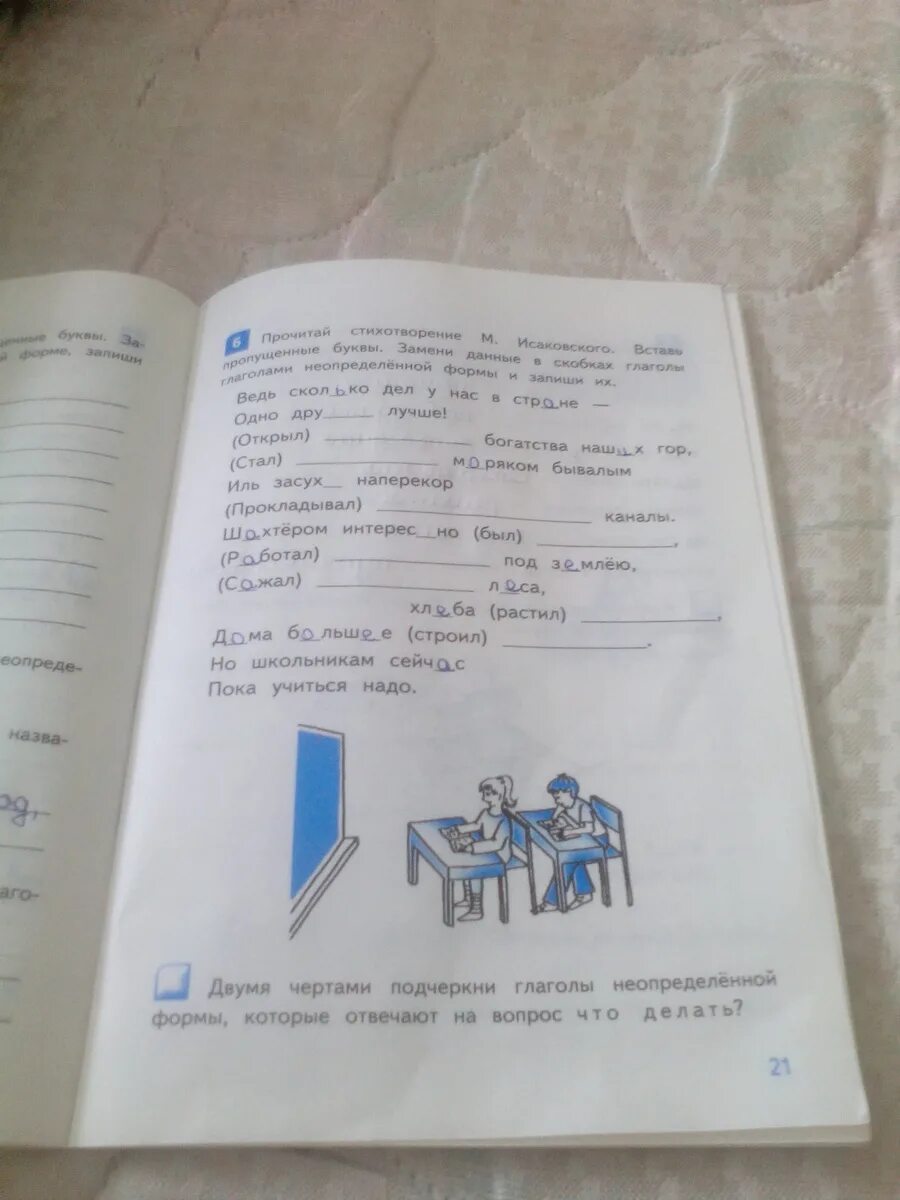 щенные буквы. За-
й форме, запиши
неопреде-
назва-
од,
лаго-
6 Прочитай стихотворение М. Исаковского. Вставь
пропущенные буквы. Замени данные в скобках глаголы
глаголами неопределённой формы и запиши их.
Ведь сколько дел у нас в стране —
Одно дру____ лучше!
(Открыл) ____ богатства наших гор,
(Стал) ____ моряком бывалым
Иль засух__ наперекор
(Прокладывал) ____ каналы.
Шахтёром интерес__но (был) ____,
(Работал) ____ под землёю,
(Сажал) ____ леса,
хлеба (растил) ____,
Дома большее (строил) ____.
Но школьникам сейчас
Пока учиться надо.
Двумя чертами подчеркни глаголы неопределённой
формы, которые отвечают на вопрос что делать?
21